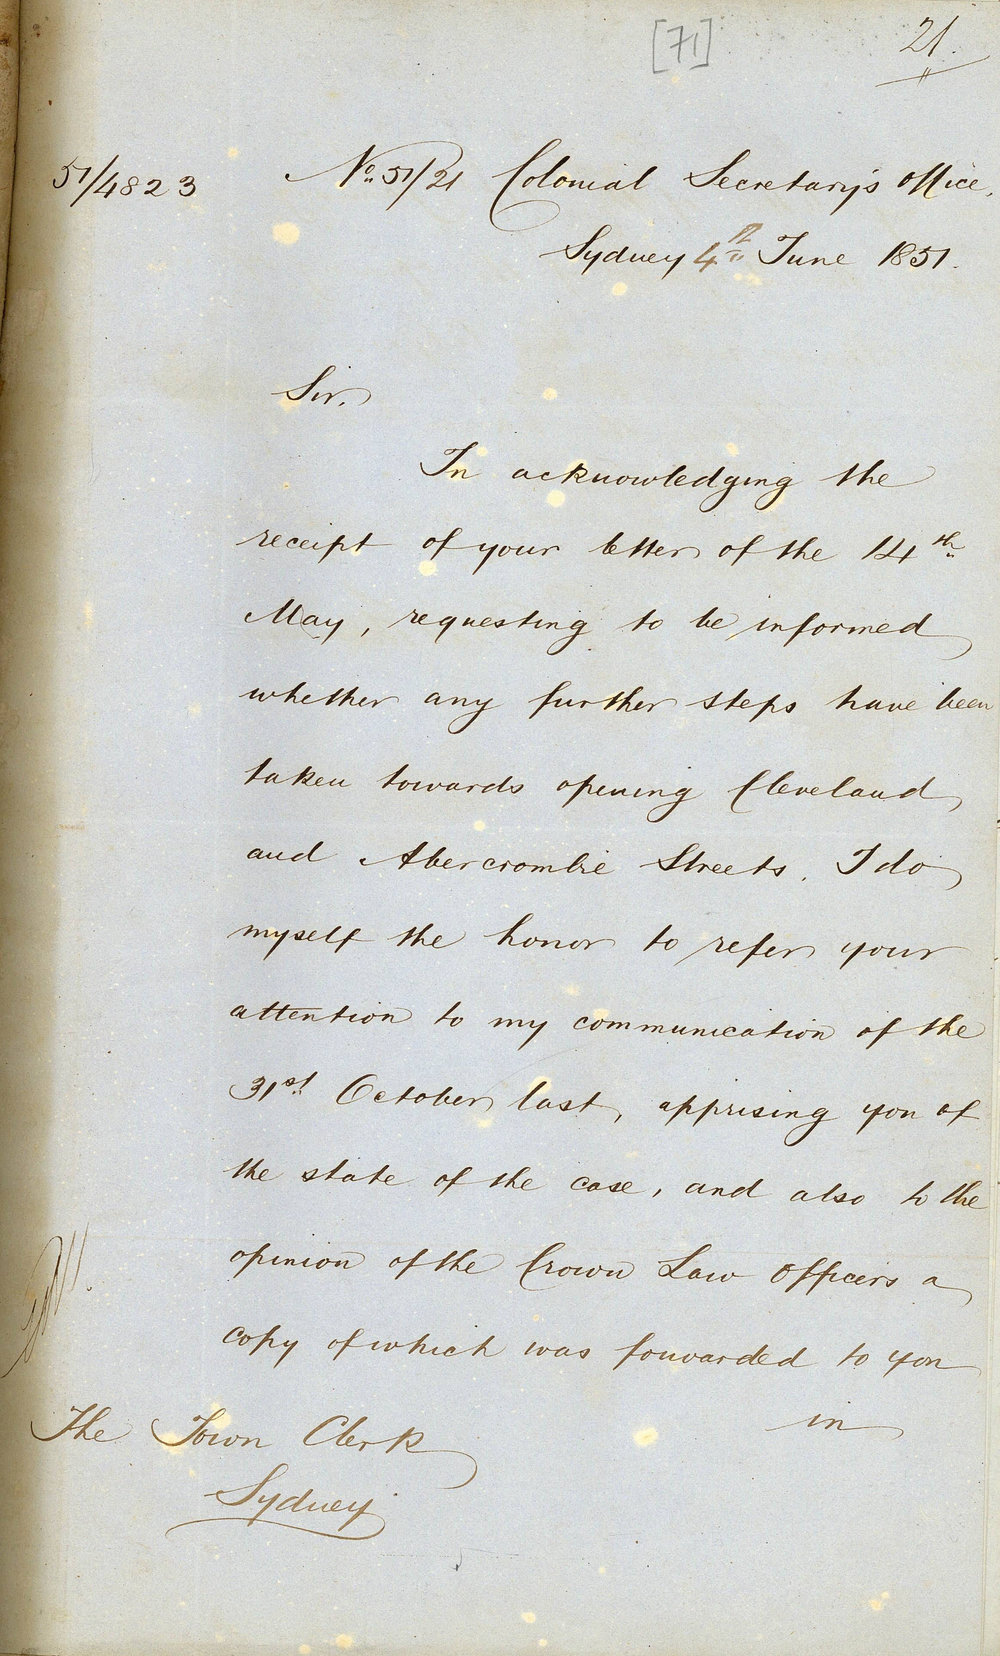 [71]
21.
51/4823
No. 51/21 Colonial Secretary's Office,
Sydney 4th June 1851.
Sir,
In acknowledging the
receipt of your letter of the 14th
May, requesting to be informed
whether any further steps have been
taken towards opening Cleveland
and Abercrombie Streets. I do
myself the honor to refer your
attention to my communication of the
31st October last, apprising you of
the state of the case, and also to the
opinion of the Crown Law Officers a
copy of which was forwarded to you
in
The Town Clerk
Sydney